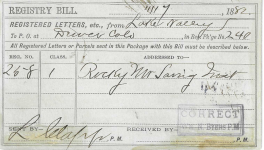 REGISTRY BILL. 1882.
REGISTERED LETTERS, etc., from Lake Valley
To P. O. at Denver Colo in Reg. Pk'ge No. 248
All Registered Letters or Parcels sent in this Package with this Bill must be described below.
REG. NO. CLASS. ADDRESSED TO—
268 1 Rocky Mt Saving Inst
CORRECT
SENT BY RECEIVED BY
P. M. P. M.